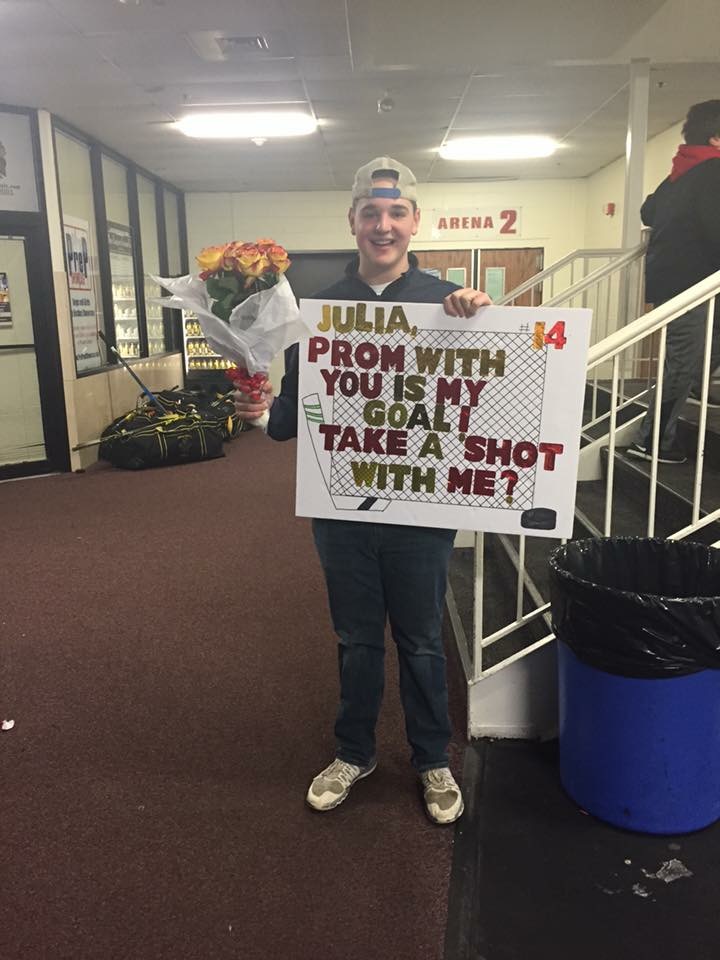 ARENA 2
JULIA,
#14
PROM WITH
YOU IS MY
GOAL I
TAKE A 'SHOT
WITH ME?
PREP